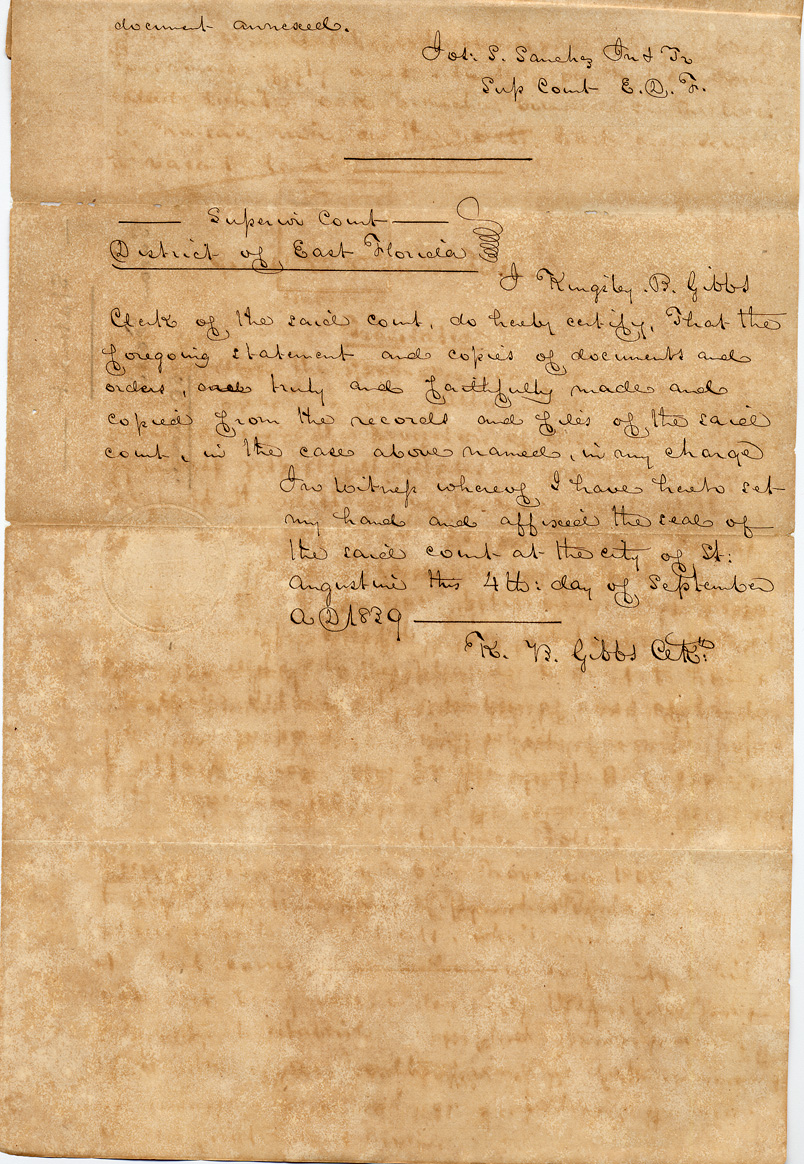 document annexed.
Jos: S. Sanchez In & Tr
Sup Court E. D. F.
Superior Court
District of East Florida
I Kingsley. B. Gibbs
Clerk of the said court, do hereby certify, That the
foregoing statement and copies of documents and
orders, are truly and faithfully made and
copied from the records and files of the said
court, in the case above named, in my charge
In Witness whereof I have hereto set
my hand and affixed the seal of
the said court at the city of St:
Augustine this 4th: day of September
A D 1839
K. B. Gibbs Clk: